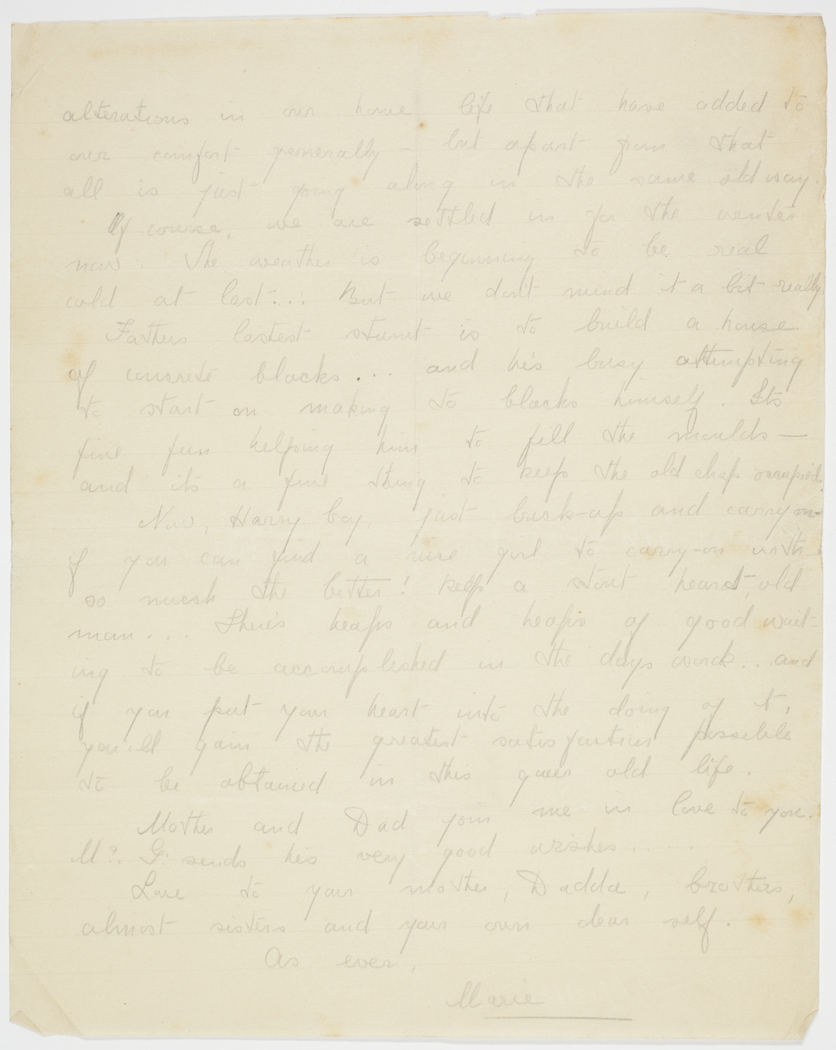 alterations in our home life that have added to
our comfort generally - but apart from that
all is just going along in the same old way.
Of course, we are settled in for the winter
now. The weather is beginning to be real
cold at last... But we don't mind it a bit really
Fathers lastest stunt is to build a house
of concrete blocks... and he's busy attempting
to start on making to blocks himself. Its
fine fun helping him to fill the moulds —
and its a fine thing to keep the old chap occupied.
Now, Harry boy, just buck-up and carry on-
if you can find a nice girl to carry-on with
so much the better! Keep a stout heart, old
man... There's heaps and heaps of good wait-
ing to be accomplished in the days work... and
if you put your heart into the doing of it,
you'll gain the greatest satisfaction possible
to be obtained in this queer old life.
Mother and Dad join me in love to you.
Mr. G. sends his very good wishes.....
Love to your mother, Dadda, brothers,
almost sisters and your own dear self.
As ever,
Marie